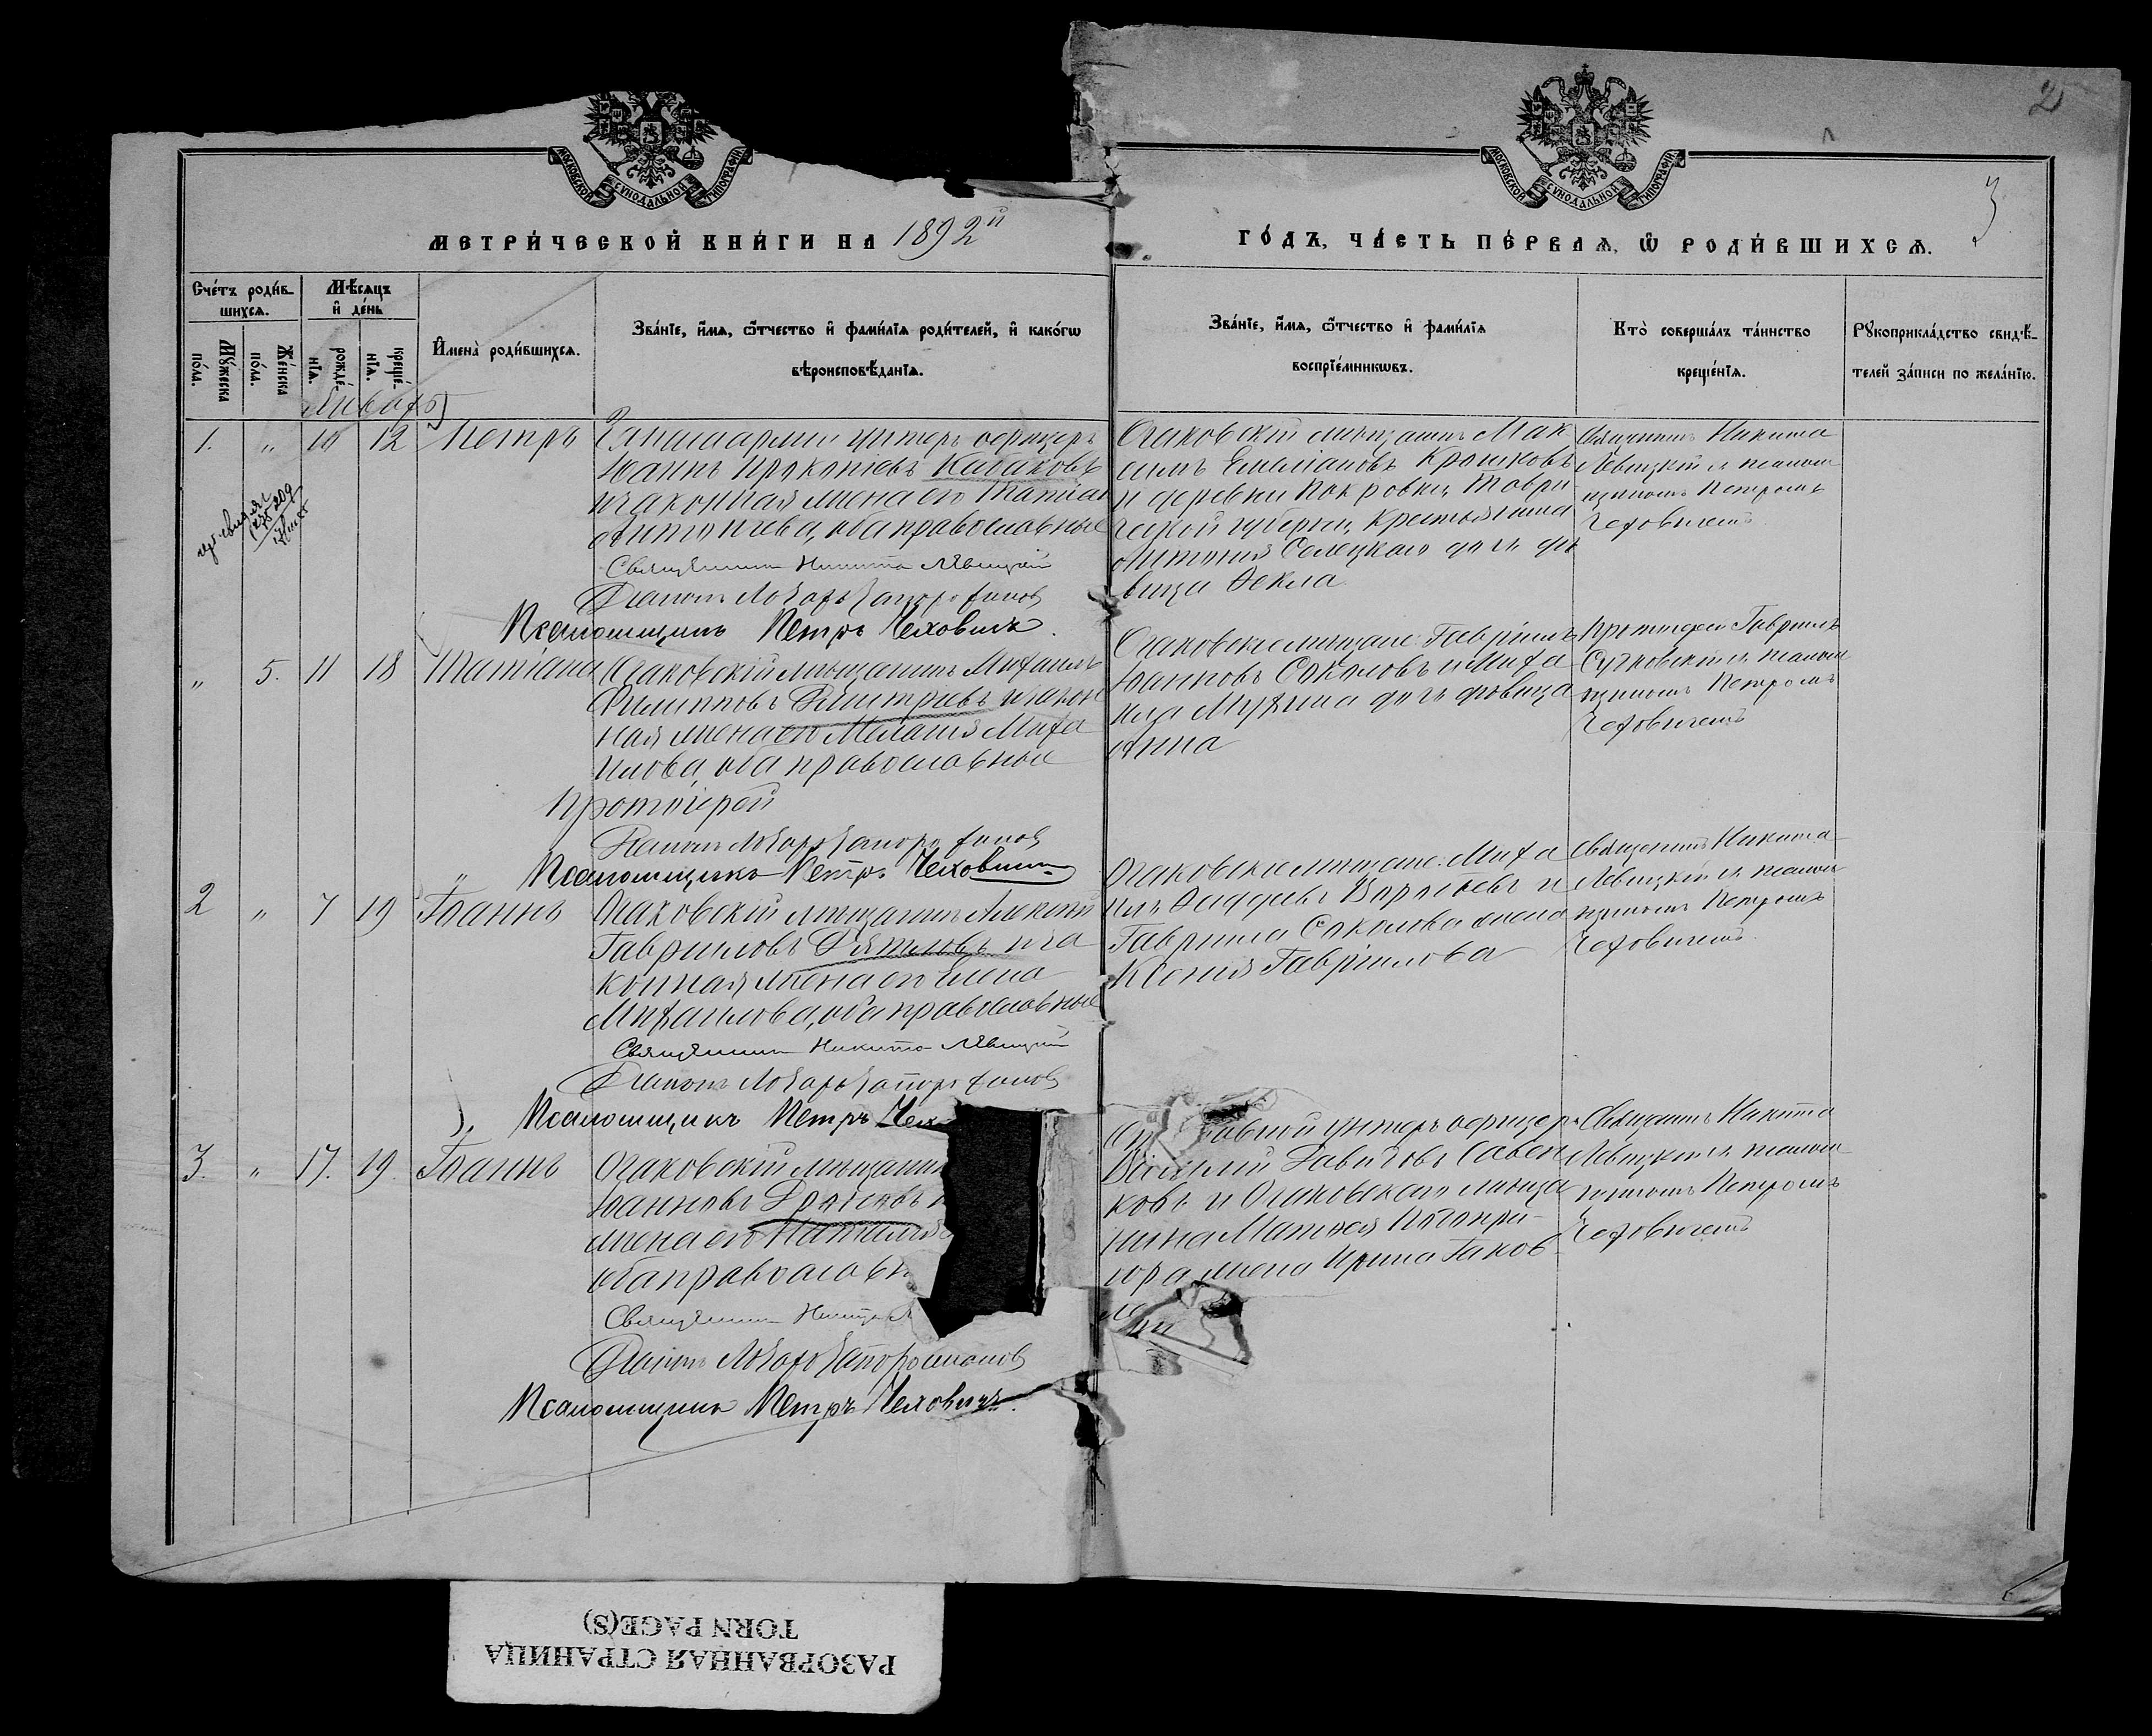 2
3
МОСКОВСКОЙ СѴНОДАЛЬНОЙ ТИПОГРАФІИ
МОСКОВСКОЙ СѴНОДАЛЬНОЙ ТИПОГРАФІИ
МЕТРИ́ЧЕСКОЙ КНИ́ГИ НА 1892й
ГО́ДЪ, ЧА́СТЬ ПЕ́РВАѦ, Ѽ РОДИ́ВШИХСѦ.
Сче́тъ роди́в-
шихсѧ.
Мꙋ́жеска по́ла.
Же́нска по́ла.
Мѣ́сѧцъ
и҆ де́нь
рожде́-нїѧ.
креще́-нїѧ.
И҆мена̀ роди́вшихсѧ.
Зва́нїе, и҆́мѧ, ѻ҆́тчество и҆ фами́лїѧ роди́телей, и҆ како́гѡ
вѣроисповѣ́данїѧ.
Зва́нїе, и҆́мѧ, ѻ҆́тчество и҆ фами́лїѧ
воспрїе́мникѡвъ.
Кто̀ соверша́лъ та́инство
креще́нїѧ.
Рꙋкоприкла́дство свидѣ́-
телей за́писи по жела́нїю.
Январь
1. " 10 12 Петръ
унтеръ офицеръ
Іоаннъ Прокопіевъ Кабаковъ
и законная жена его Татіана
Антоніева, оба православные
Священникъ Никита Левицкій
Діаконъ
Псаломщикъ Петръ Чеховичъ.
Очаковскій мѣщанинъ Мак
симъ Емеліановъ Крошковъ
и деревни Покровки, Таври
ческой губерніи, крестьянина
Антонія Селецкаго дочь дѣ
вица Ѳекла
Священникъ Никита
Левицкій съ псалом
щикомъ Петромъ
Чеховичемъ.
" 5. 11 18 Татіана
Очаковскій мѣщанинъ Михаилъ
Филипповъ Димитріевъ и закон
ная жена его Меланія Миха
илова, оба православные
Протоіерей
Діаконъ
Псаломщикъ Петръ Чеховичъ
Очаковскіе мѣщане: Гавріилъ
Іоанновъ Соколовъ и Миха
ила Мухина дочь дѣвица
Анна
Протоіерей Гавріилъ
Сучковскій съ псалом
щикомъ Петромъ
Чеховичемъ
2 " 7 19 Іоаннъ
Очаковскій мѣщанинъ Алексій
Гавриловъ Дятловъ и за
конная жена его Елена
Михаилова, оба православные
Священникъ Никита Левицкій
Діаконъ
Псаломщикъ Петръ Чехо
Очаковскіе мѣщане: Миха
илъ Ѳаддеевъ и
Гавриила Соколова жена
Ксенія Гавріилова
Священникъ Никита
Левицкій съ псалом
щикомъ Петромъ
Чеховичемъ.
3. " 17. 19. Іоаннъ
Очаковскій мѣщанинъ
Іоанновъ
жена его Наталія
оба православн
Священникъ Никита Л
Діаконъ
Псаломщикъ Петръ Чеховичъ.
унтеръ офицеръ
Василій Давидовъ Савен
ковъ и Очаковскаго мѣща
нина Матѳея
гора жена Ирина Іаков
Священникъ Никита
Левицкій съ псалом
щикомъ Петромъ
Чеховичемъ
РАЗОРВАННАЯ СТРАНИЦА
TORN PAGE(S)